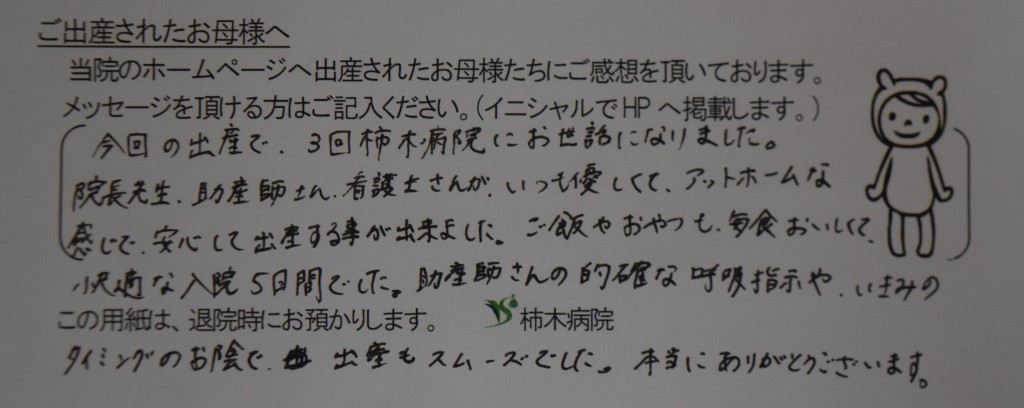 ご出産されたお母様へ
当院のホームページへ出産されたお母様たちにご感想を頂いております。
メッセージを頂ける方はご記入ください。(イニシャルでHPへ掲載します。)
今回の出産で、3回柿木病院にお世話になりました。
院長先生、助産師さん、看護士さんが、いつも優しくて、アットホームな
感じで、安心して出産する事が出来ました。ご飯やおやつも、毎食おいしくて、
快適な入院5日間でした。助産師さんの的確な呼吸指示や、いきみの
この用紙は、退院時にお預かりします。 柿木病院
タイミングのお陰で、出産もスムーズでした。本当にありがとうございます。